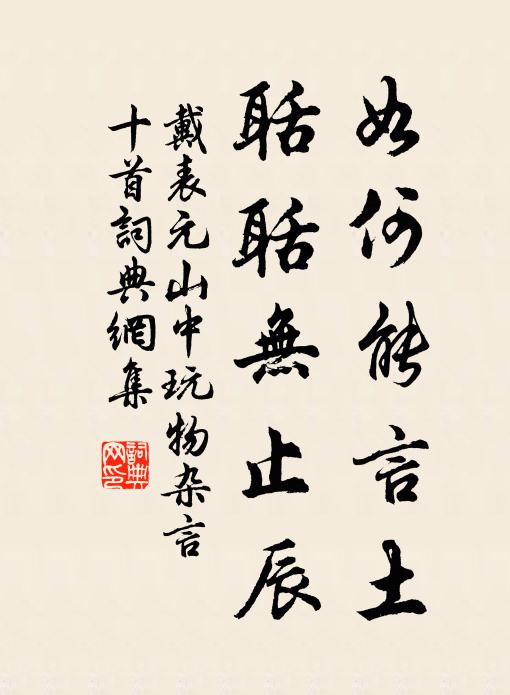 如何能言土
聒聒無止辰
戴表元山中玩物杂言
十首詞典網集
詞典網印